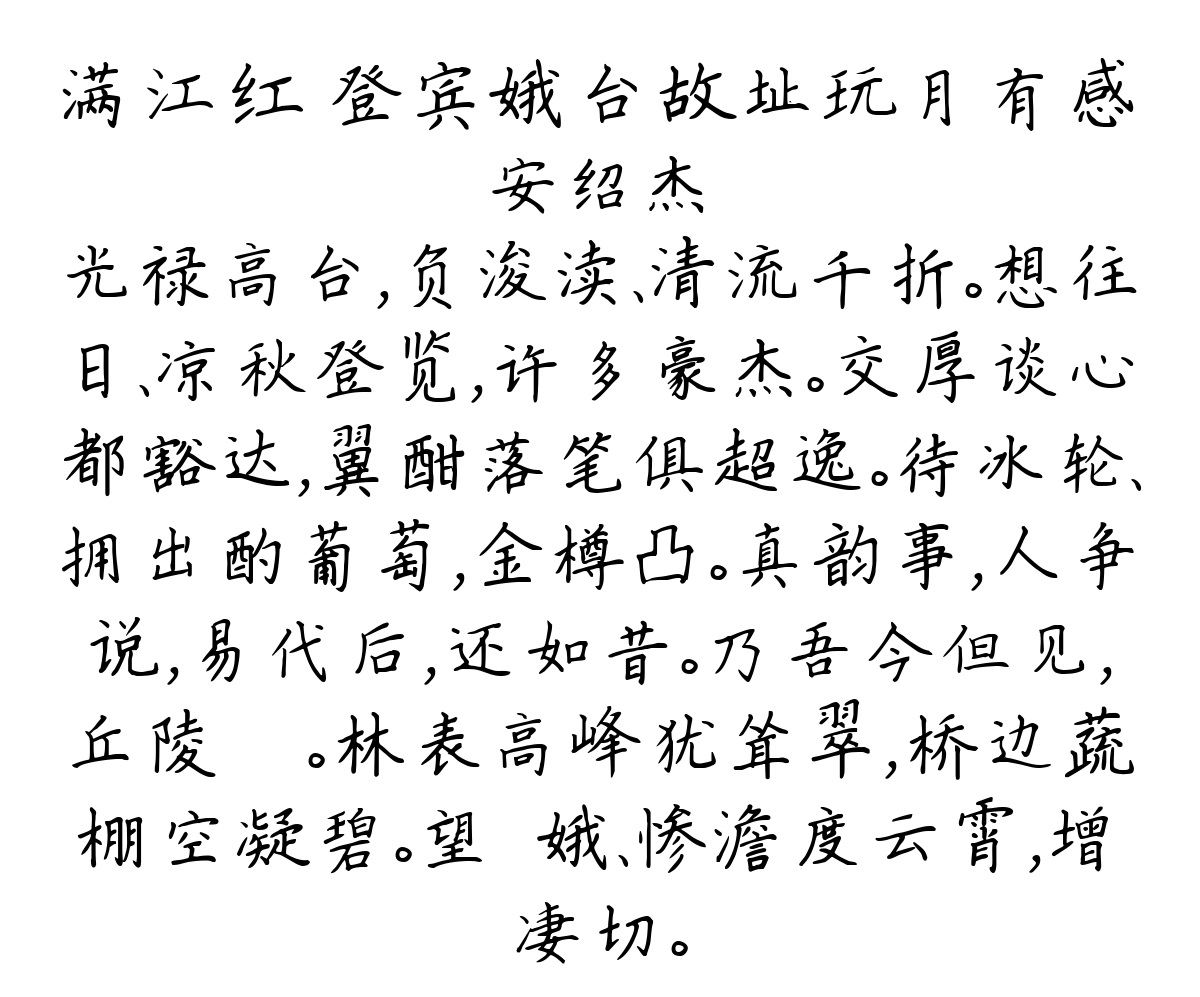 满江红 登宾娥台故址玩月有感
安绍杰
光禄高台,负浚渎、清流千折。想往
日、凉秋登览,许多豪杰。交厚谈心
都豁达,翼酣落笔俱超逸。待冰轮、
拥出酌葡萄,金樽凸。真韵事,人争
说,易代后,还如昔。乃吾今但见,
丘陵 。林表高峰犹耸翠,桥边蔬
棚空凝碧。望 娥、惨澹度云霄,增
凄切。